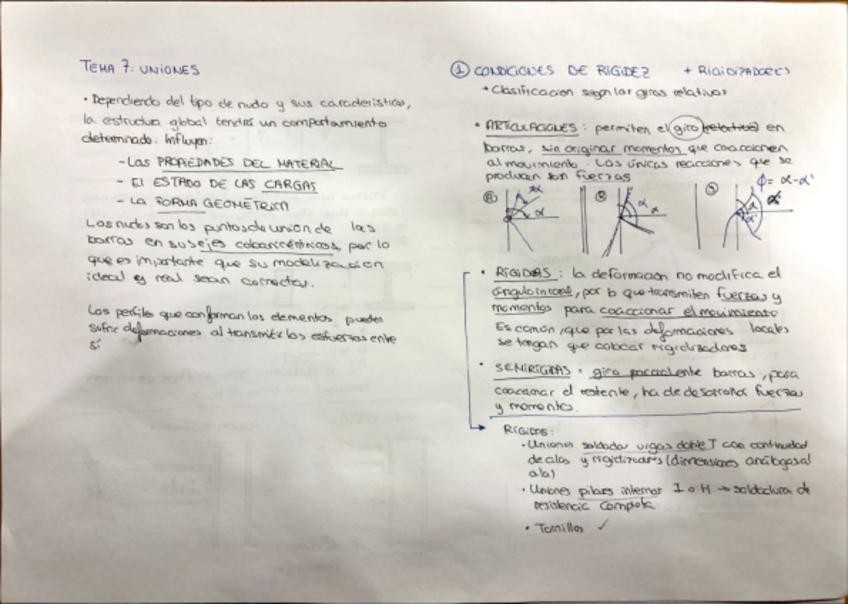 TEMA 7: UNIONES
• Dependiendo del tipo de nudo y sus características,
la estructura global tendrá un comportamiento
determinado. Influyen:
- Las PROPIEDADES DEL MATERIAL
- El ESTADO DE LAS CARGAS
- LA FORMA GEOMÉTRICA
Los nudos son los puntos de unión de las
barras en sus ejes cobaricéntricos, por lo
que es importante que su modelización
ideal y real sean correctas.
Los perfiles que conforman los elementos, pueden
sufrir deformaciones al transmitir los esfuerzos entre
sí
① CONDICIONES DE RIGIDEZ + RIGIDIZADORES
* Clasificación según los giros relativos
• ARTICULACIONES: permiten el giro (relativo) en
barras, sin originar momentos que coaccionen
al movimiento. Las únicas reacciones que se
produzcan son fuerzas
ϕ = α - α'
α α α
• RÍGIDAS: la deformación no modifica el
ángulo inicial, por lo que transmiten fuerzas y
momentos para coaccionar el movimiento
Es común, que por las deformaciones locales
se tengan que colocar rigidizadores
• SEMIRÍGIDAS: giro parcialmente barras, para
coaccionar el restante, ha de desarrollar fuerzas
y momentos.
RÍGIDOS:
• Uniones soldadas vigas doble T con continuidad
de alas y rigidizadores (dimensiones análogas al
ala)
• Uniones pilares internos I o H → soldadura de
resistencia completa
• Tornillos ✓